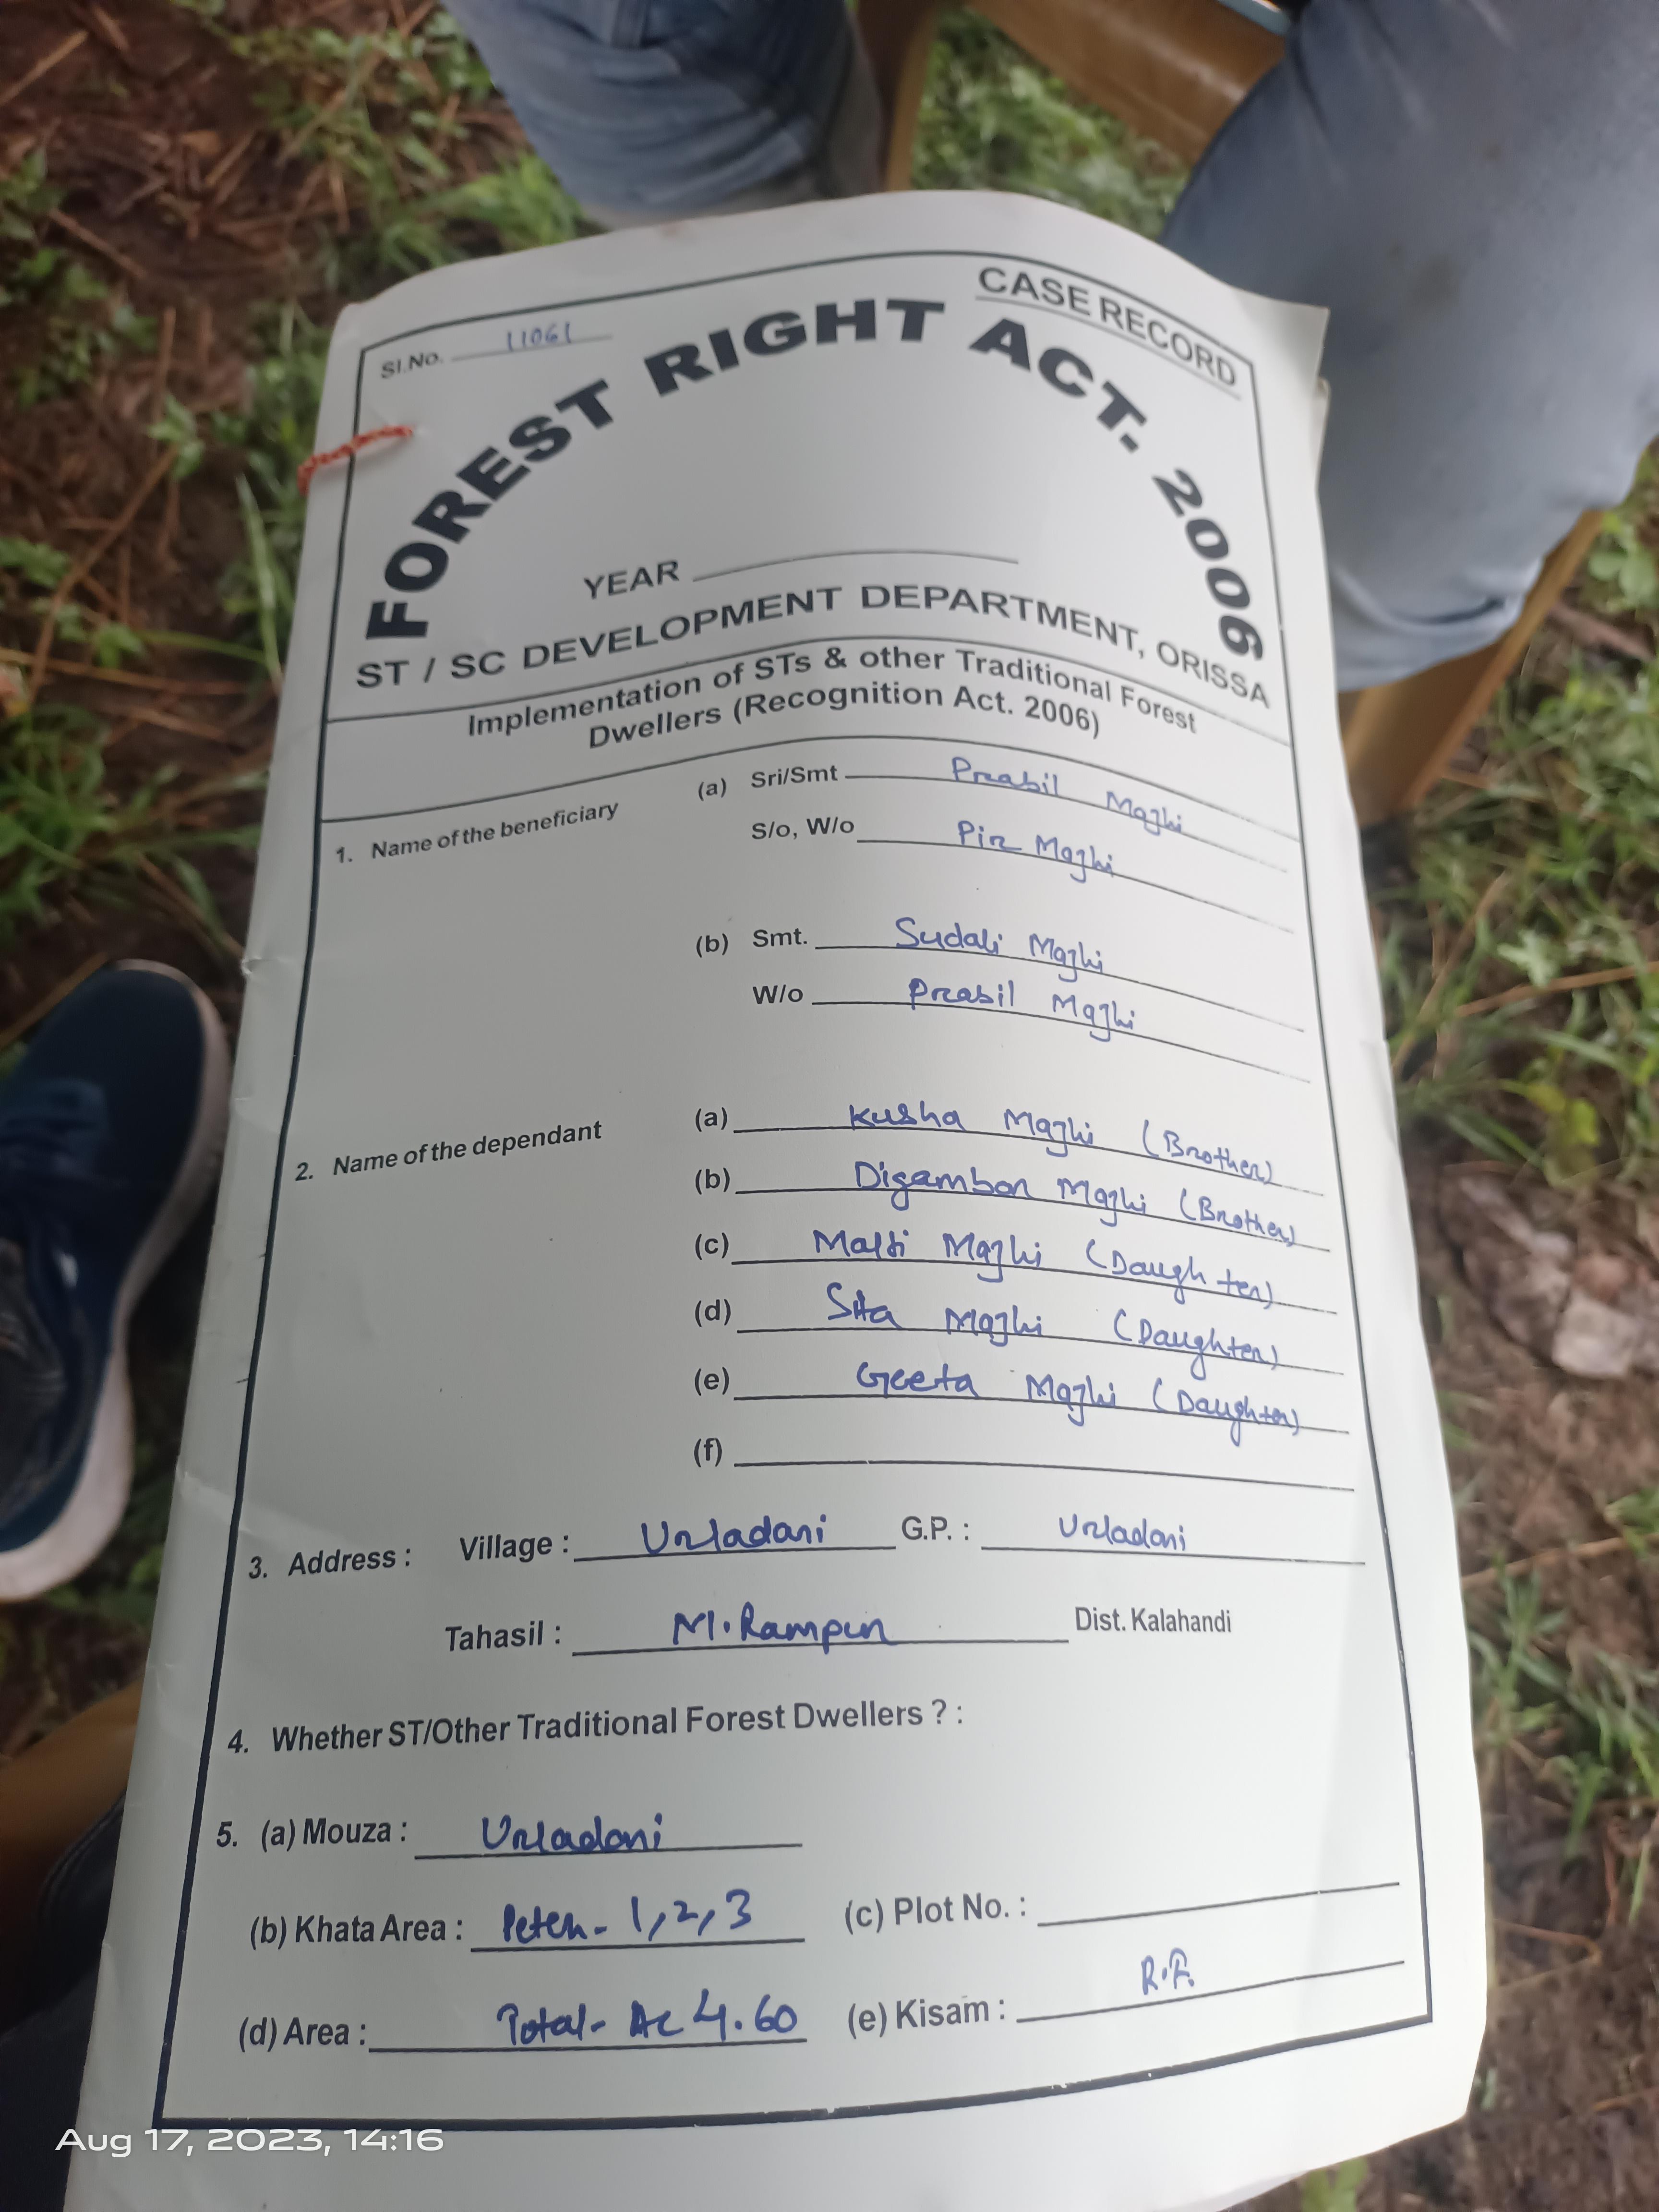 CASE RECORD
Sl.No. 11061
FOREST RIGHT ACT. 2006
YEAR
ST / SC DEVELOPMENT DEPARTMENT, ORISSA
Implementation of STs & other Traditional Forest
Dwellers (Recognition Act. 2006)
1. Name of the beneficiary (a) Sri/Smt Prabil Majhi
S/o, W/o Pir Majhi
(b) Smt. Sudali Majhi
W/o Prabil Majhi
2. Name of the dependant (a) Kusha Majhi (Brother)
(b) Digambor Majhi (Brother)
(c) Malti Majhi (Daughter)
(d) Sita Majhi (Daughter)
(e) Geeta Majhi (Daughter)
(f)
3. Address : Village : Urladani G.P. : Urladani
Tahasil : M.Rampur Dist. Kalahandi
4. Whether ST/Other Traditional Forest Dwellers ? :
5. (a) Mouza : Urladani
(b) Khata Area : Peten- 1,2,3 (c) Plot No. :
(d) Area : Total- Ac 4.60 (e) Kisam : R.F.
Aug 17, 2023, 14:16